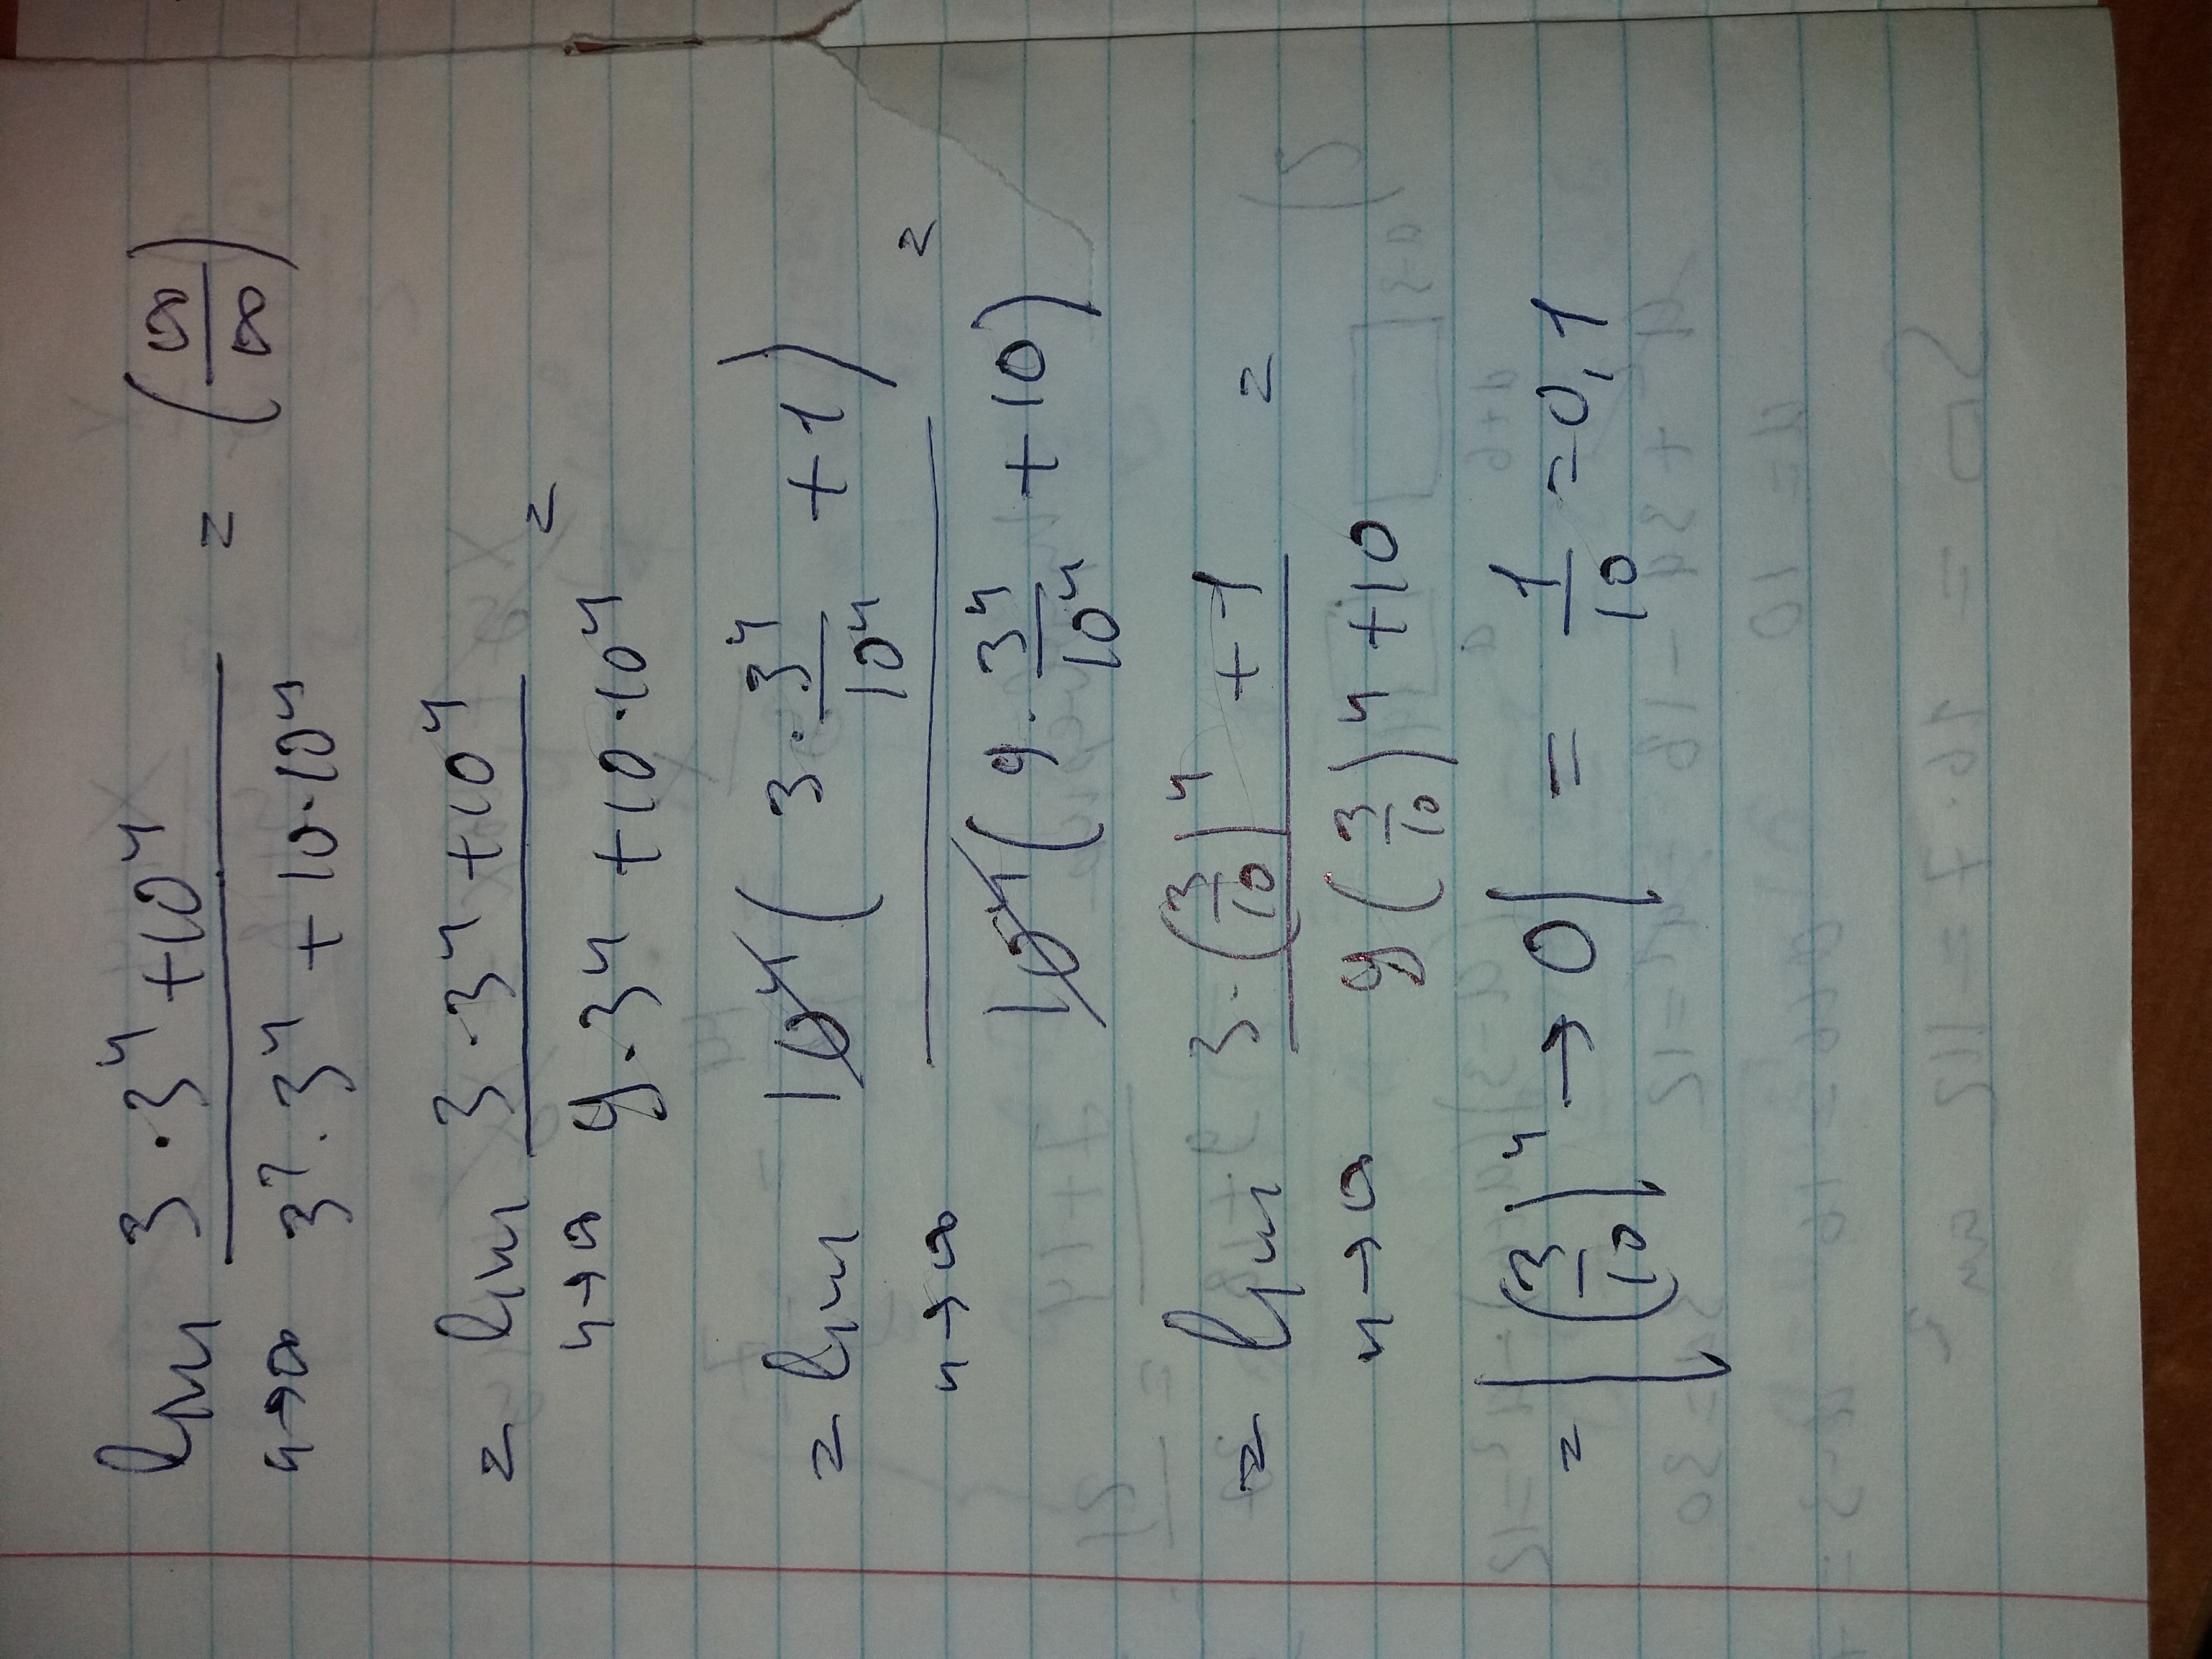 lim 3·3ⁿ+10ⁿ / 3²·3ⁿ+10·10ⁿ = (∞/∞)
n→∞
= lim 3·3ⁿ+10ⁿ / 9·3ⁿ+10·10ⁿ =
n→∞
= lim 10ⁿ(3·3ⁿ/10ⁿ+1) / 10ⁿ(9·3ⁿ/10ⁿ+10) =
n→∞
= lim 3·(3/10)ⁿ+1 / 9(3/10)ⁿ+10 =
n→∞
= |(3/10)ⁿ→0| = 1/10 = 0,1